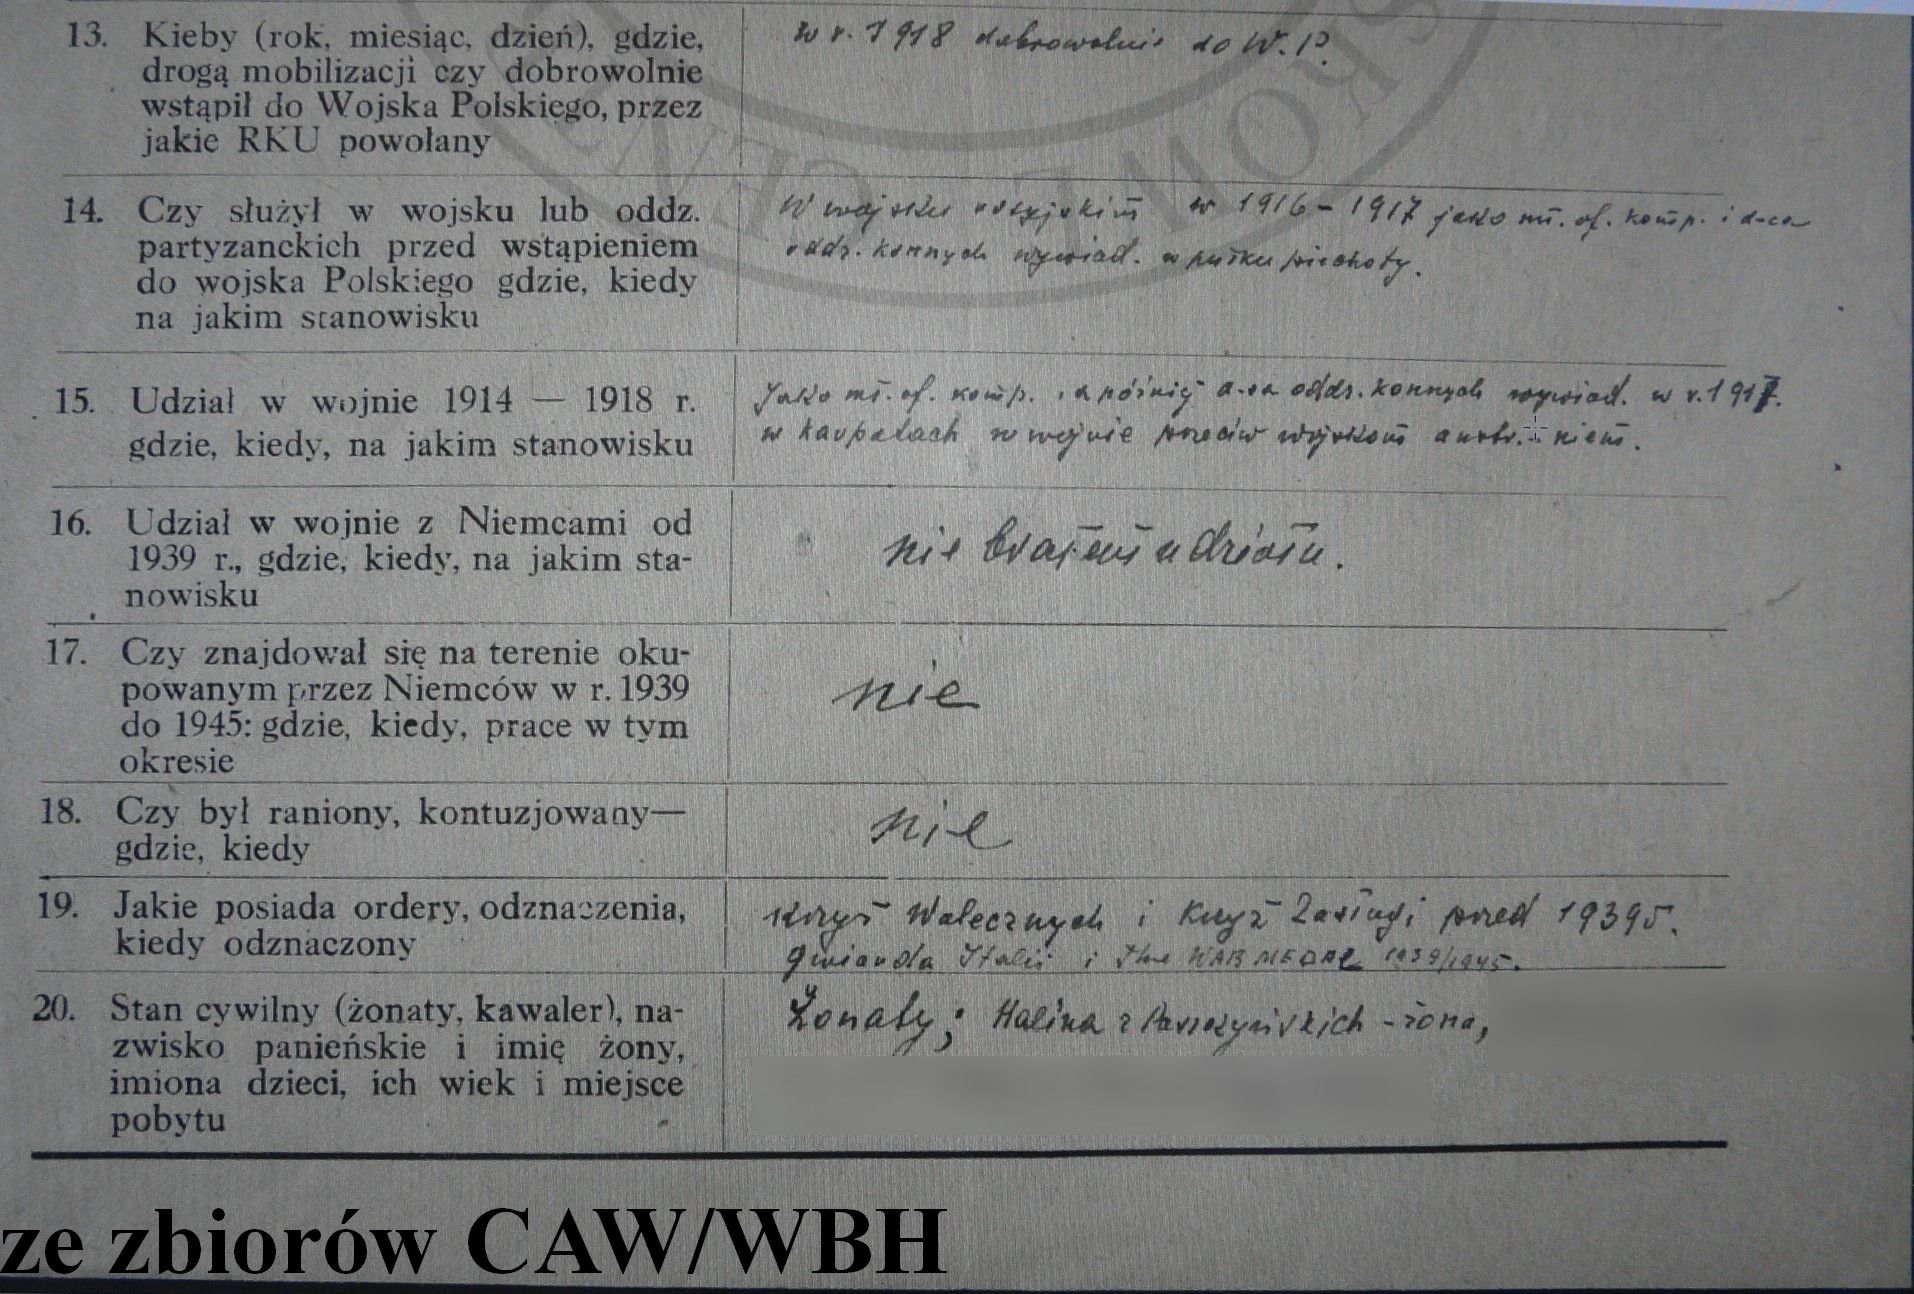 13. Kieby (rok, miesiąc, dzień), gdzie,
drogą mobilizacji czy dobrowolnie
wstąpił do Wojska Polskiego, przez
jakie RKU powołany
w r. 1918 dobrowolnie do W.P.
14. Czy służył w wojsku lub oddz.
partyzanckich przed wstąpieniem
do wojska Polskiego gdzie, kiedy
na jakim stanowisku
W wojsku rosyjskim w 1916 – 1917 jako mł. of. komp. i d-ca
oddz. konnych wywiad. w pułku piechoty.
15. Udział w wojnie 1914 — 1918 r.
gdzie, kiedy, na jakim stanowisku
Jako mł. of. komp., a później d-ca oddz. konnych wywiad. w r. 1917.
w Karpatach w wojnie przeciw wojskom austr. - niem.
16. Udział w wojnie z Niemcami od
1939 r., gdzie, kiedy, na jakim sta-
nowisku
nie brałem udziału.
17. Czy znajdował się na terenie oku-
powanym przez Niemców w r. 1939
do 1945: gdzie, kiedy, prace w tym
okresie
nie
18. Czy był raniony, kontuzjowany—
gdzie, kiedy
nie
19. Jakie posiada ordery, odznaczenia,
kiedy odznaczony
Krzyż Walecznych i Krzyż Zasługi przed 1939 r.
Gwiazda Italii i The WAR MEDAL 1939/1945.
20. Stan cywilny (żonaty, kawaler), na-
zwisko panieńskie i imię żony,
imiona dzieci, ich wiek i miejsce
pobytu
Żonaty; Halina z - żona,
ze zbiorów CAW/WBH